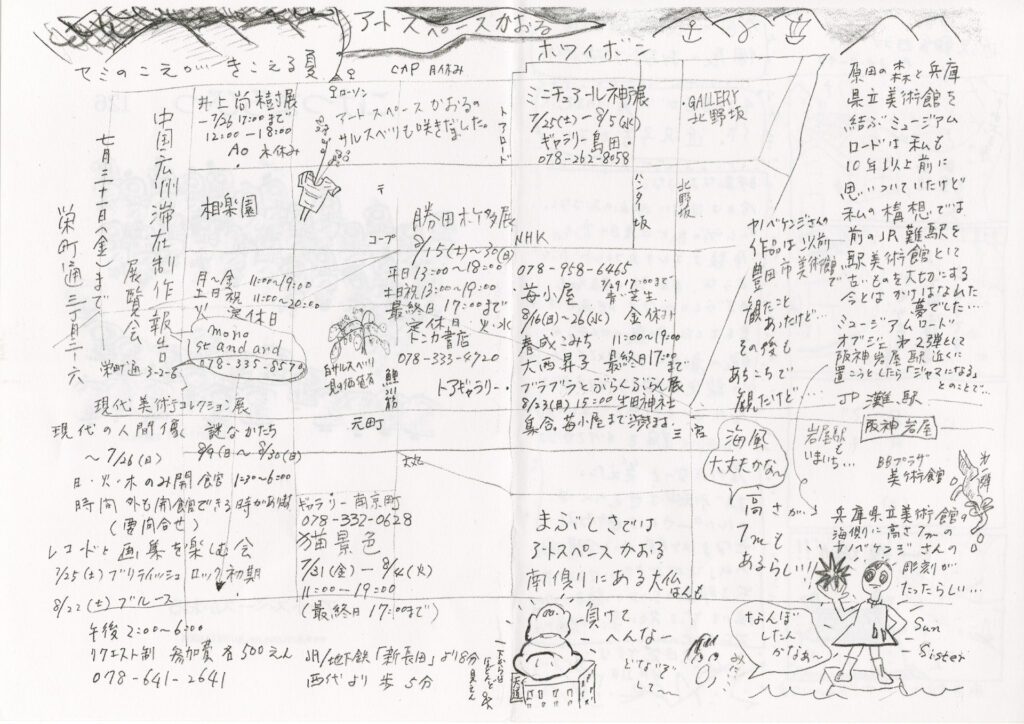 アートスペースかおる
ホワイボン
セミのこえが きこえる夏
CAP 月休み
ローソン
井上尚樹展
〜7/26 17:00まで
12:00−18:00
A0 木休み
アートスペース かおるの
サルスベリも咲きだした。
トアロード
ミニチュアール神戸展
7/25(土)〜8/5(水)
ギャラリー島田・
078-262-8058
・GALLERY
北野坂
ハンター坂
北野坂
原田の森と兵庫
県立美術館を
結ぶミュージアム
ロードは私も
10年以上前に
思いついていたけど
私の構想では
前のJR灘駅を
駅美術館として
古いものを大切にする
夢でした…
ミュージアムロード
オブジェ 第2弾として
阪神岩屋駅近くに
置こうとしたら「ジャマになる」
とのことで…
JR 灘駅
ヤノベケンジさんの
作品は以前
豊田市美術館で
観たこと
あったけど…
その後も
あちこちで
観たけど…
中国広州滞在制作報告
展覧会
七月三十一日(金)まで
栄町通三丁目二・六
相楽園
コープ
月〜金 11:00〜19:00
土日祝 11:00〜20:00
火 定休日
mono
1st and and
078-335-8579
栄町通 3-2-6
勝田ホケ多展
8/15(土)〜30(日)
平日13:00〜18:00
土日祝13:00〜19:00
最終日 17:00まで
定休日 火・水
トンカ書店
078-333-4720
トアギャラリー・
白サルスベリ
見る価値有
鯉川筋
元町
大丸
NHK
078-958-6465
・苺小屋
8/16(日)〜26(水) 金休み
春成こみち 11:00〜19:00
大西昇子 最終日17:00まで
ブラブラとぶらんぶらん展
8/23(日)15:00生田神社
集合、苺小屋まで
三宮
現代美術コレクション展
現代の人間像 謎なかたち
〜7/26(日) 8/9(日)〜8/30(日)
日・火・木のみ開館 1:30〜6:00
時間外も開館できる時が
(要問合せ)
レコードと画集を楽しむ会
7/25(土)ブリティッシュロック初期
8/22(土)ブルース
午後2:00〜6:00
リクエスト制 参加費各500えん
078-641-2641
JR/地下鉄「新長田」より8分
西代より 歩 5分
ギャラリー南京町
078-332-0628
猫景色
7/31(金)〜8/4(火)
11:00−19:00
(最終日17:00まで)
まぶしさでは
アートスペースかおる
南側にある大仏はんも
負けて
へんなー
どないで
して〜
海風
大丈夫かな〜
高さが
7mも
あるらしい!
なんぼ
したん
かなぁ〜
阪神岩屋
岩屋駅も
いまいち…
BBプラザ
美術館
兵庫県立美術館の
海側に高さ7mの
ヤノベケンジさんの
彫刻が
たったらしい…
Sun
Sister